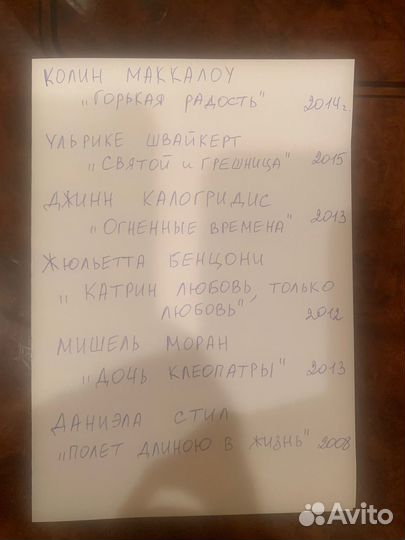 КОЛИН МАККАЛОУ
„ГОРЬКАЯ РАДОСТЬ" 2014г
УЛЬРИКЕ ШВАЙКЕРТ
„СВЯТОЙ И ГРЕШНИЦА" 2015
ДЖИНН КАЛОГРИДИС
„ОГНЕННЫЕ ВРЕМЕНА" 2013
ЖЮЛЬЕТТА БЕНЦОНИ
„КАТРИН ЛЮБОВЬ, ТОЛЬКО
ЛЮБОВЬ" 2012
МИШЕЛЬ МОРАН
„ДОЧЬ КЛЕОПАТРЫ" 2013
ДАНИЭЛА СТИЛ
„ПОЛЕТ ДЛИНОЮ В ЖИЗНЬ" 2008
Avito